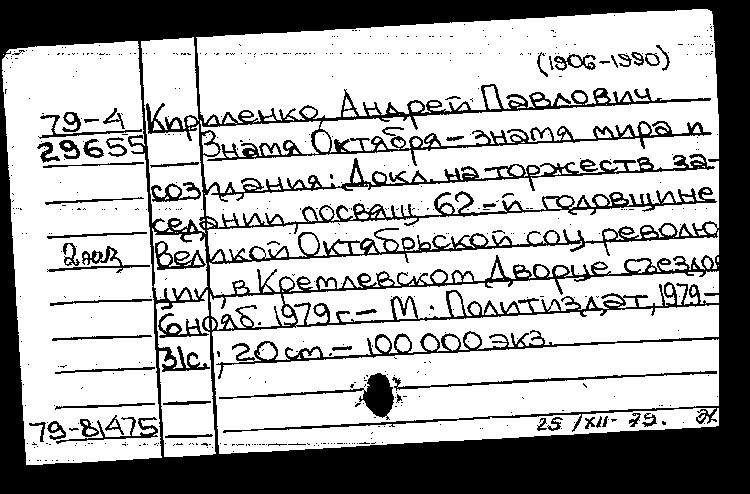 (1906-1990)
79-4 Кириленко, Андрей Павлович.
29655 Знамя Октября - знамя мира и
созидания: Докл. на торжеств. за-
седании, посвящ. 62-й годовщине
2 экз Великой Октябрьской соц. револю
ции, в Кремлевском Дворце съездов
6 нояб. 1979 г. - М.: Политиздат, 1979.-
31с.; 20 см. - 100 000 экз.
79-81475 25/XII-79.